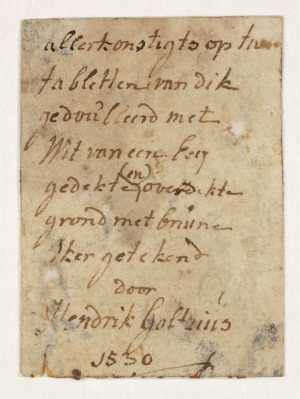 allerkonstigts op twe
tabletten van dik
gedoulleerd met
Wit van een
gedekte en overdekte
grond met brune
Iker getekend
door
Hendrik Goltzius
1530